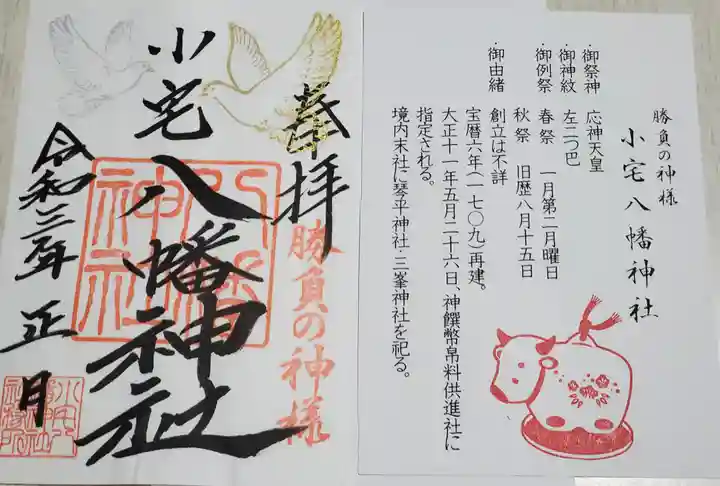 奉拝
勝負の神様
小宅八幡神社
八幡神社
令和三年正月
勝負の神様
小宅八幡神社
・御祭神 応神天皇
・御神紋 左二つ巴
・御例祭 春祭 一月第二月曜日
秋祭 旧暦八月十五日
・御由緒 創立は不詳
宝暦六年(一七〇九)再建。
大正十一年五月二十六日、神饌幣帛料供進社に
指定される。
境内末社に琴平神社・三峯神社を祀る。